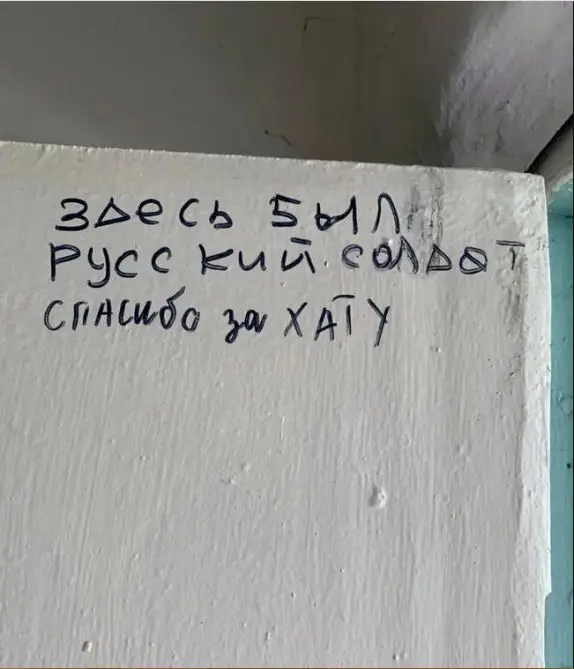 ЗДЕСЬ БЫЛ
РУССКИЙ СОЛДАТ
СПАСИБО за ХАТУ